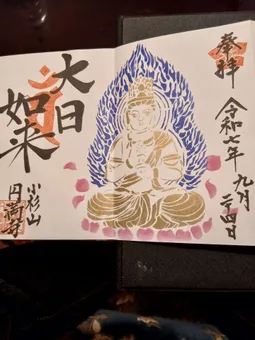 奉拝
令和七年 九月
二十四日
大日
如来
小杉山
円満寺